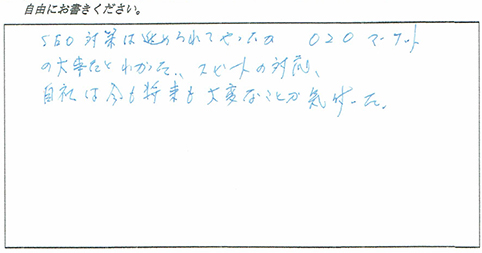 自由にお書きください。
SEO対策は進められてやったが O2O マーケット
の大事だとわかった、スピードの対応、
自社は今も将来も大変なことが気付いた。